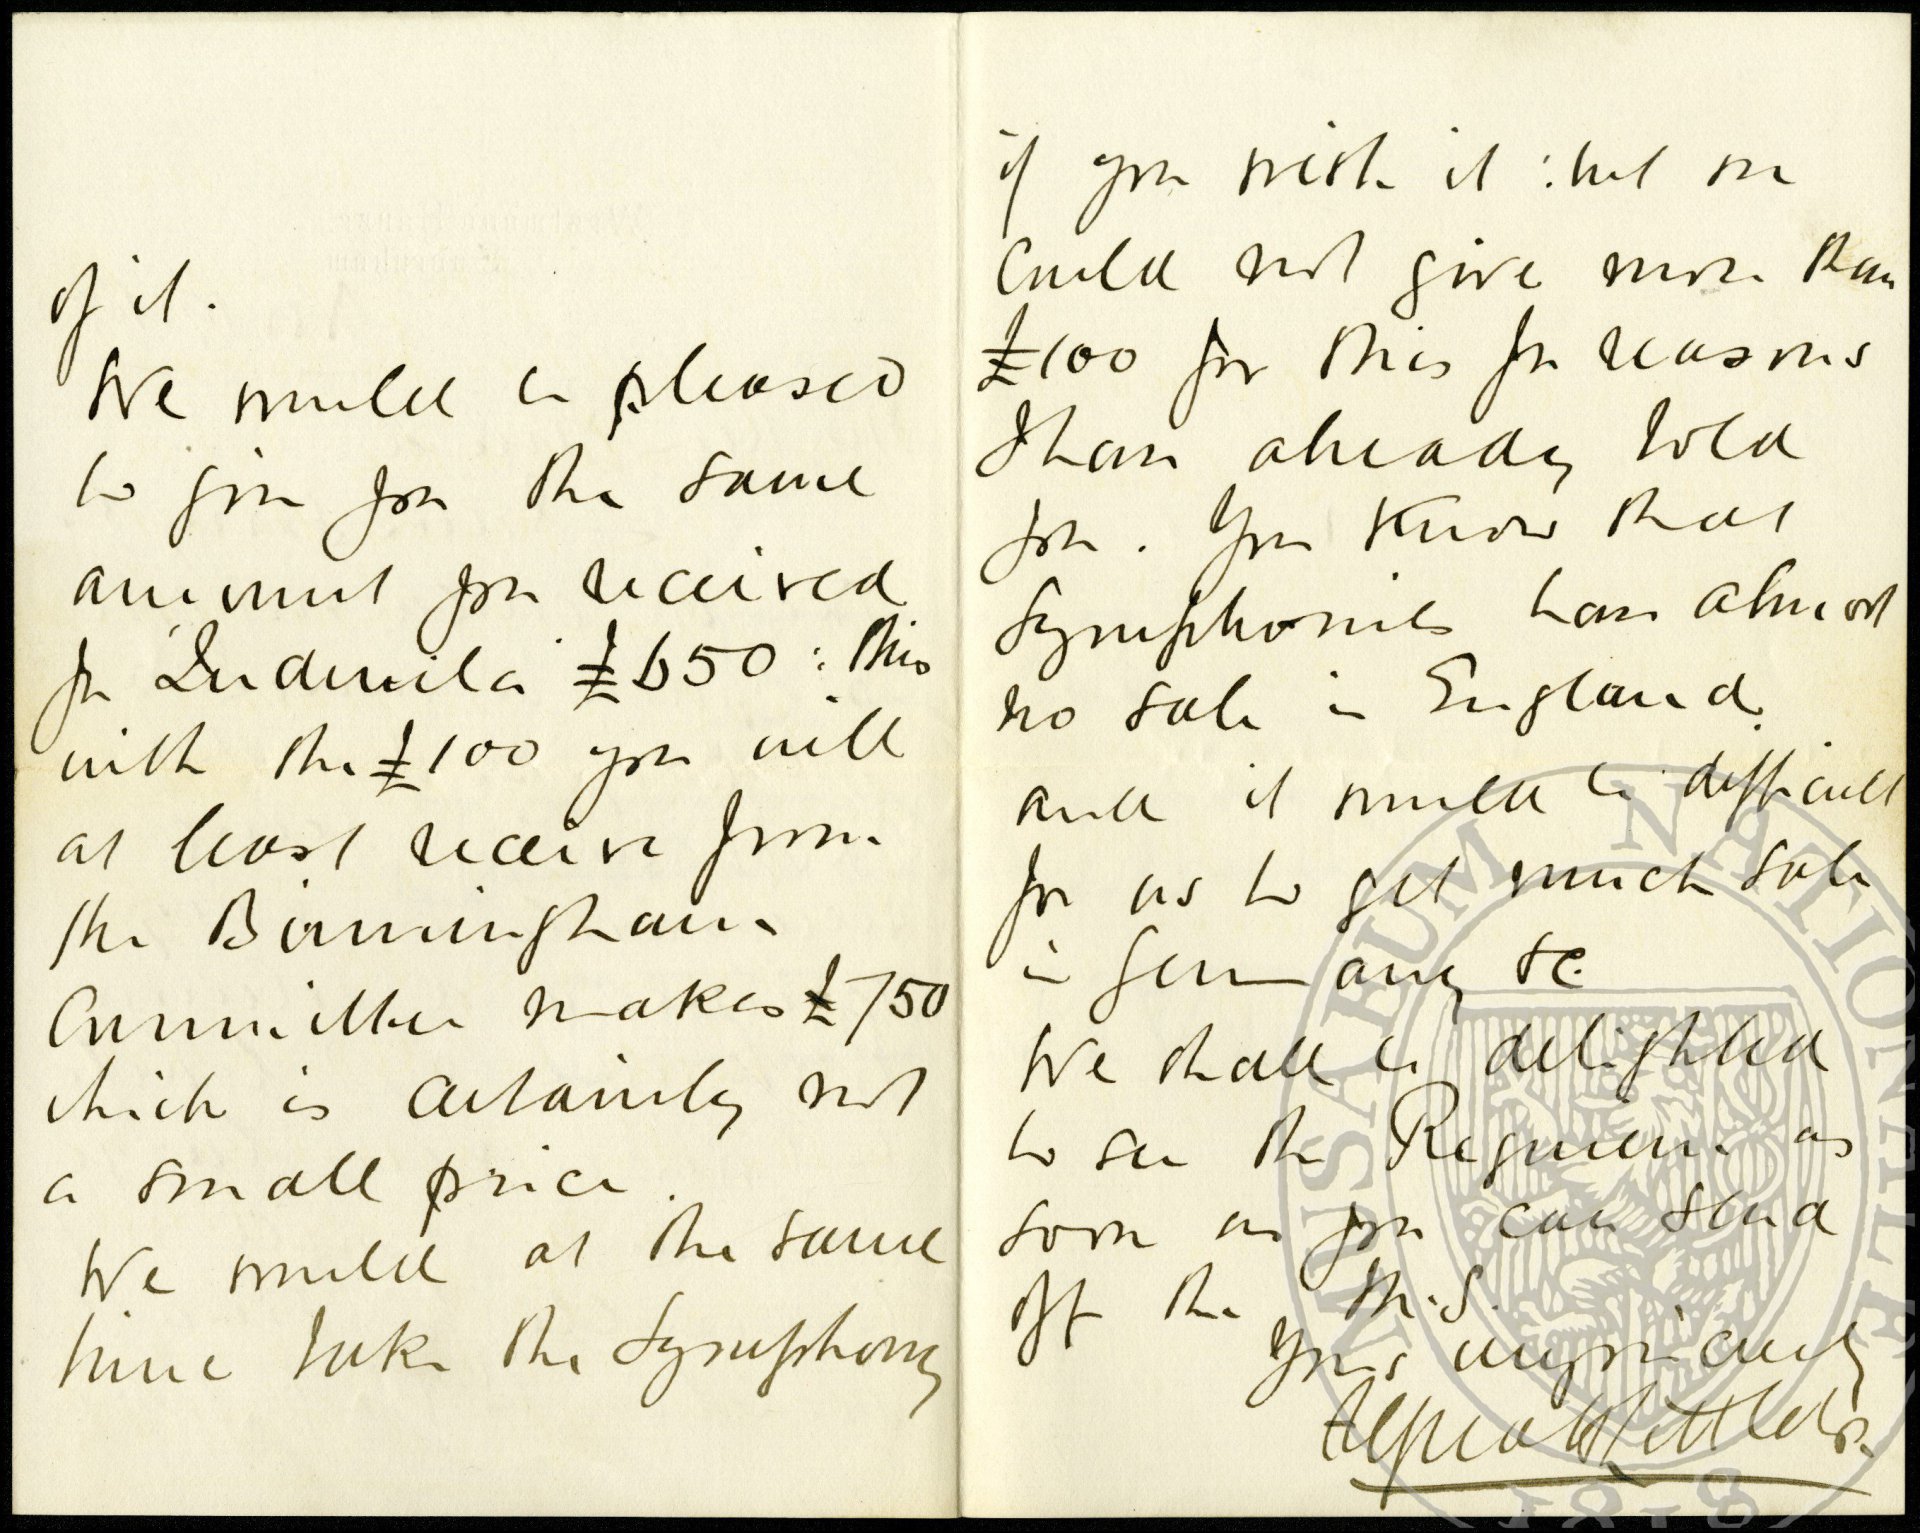 of it.
We would be pleased
to give you the same
amount you received
for "Ludmila" £650: this
with the £100 you will
at least receive from
the Birmingham
Committee makes £750
which is certainly not
a small price.
We would at the same
time take the Symphony
if you wish it: but we
could not give more than
£100 for this for reasons
I have already told
you. You know that
Symphonies have almost
no sale in England.
and it would be difficult
for us to get much sale
in Germany &c.
We shall be delighted
to see the Requiem as
soon as you can send
off the M.S.
Yours very sincerely
Alfred H Littleton
MUSAEUM NATIONALE
1818